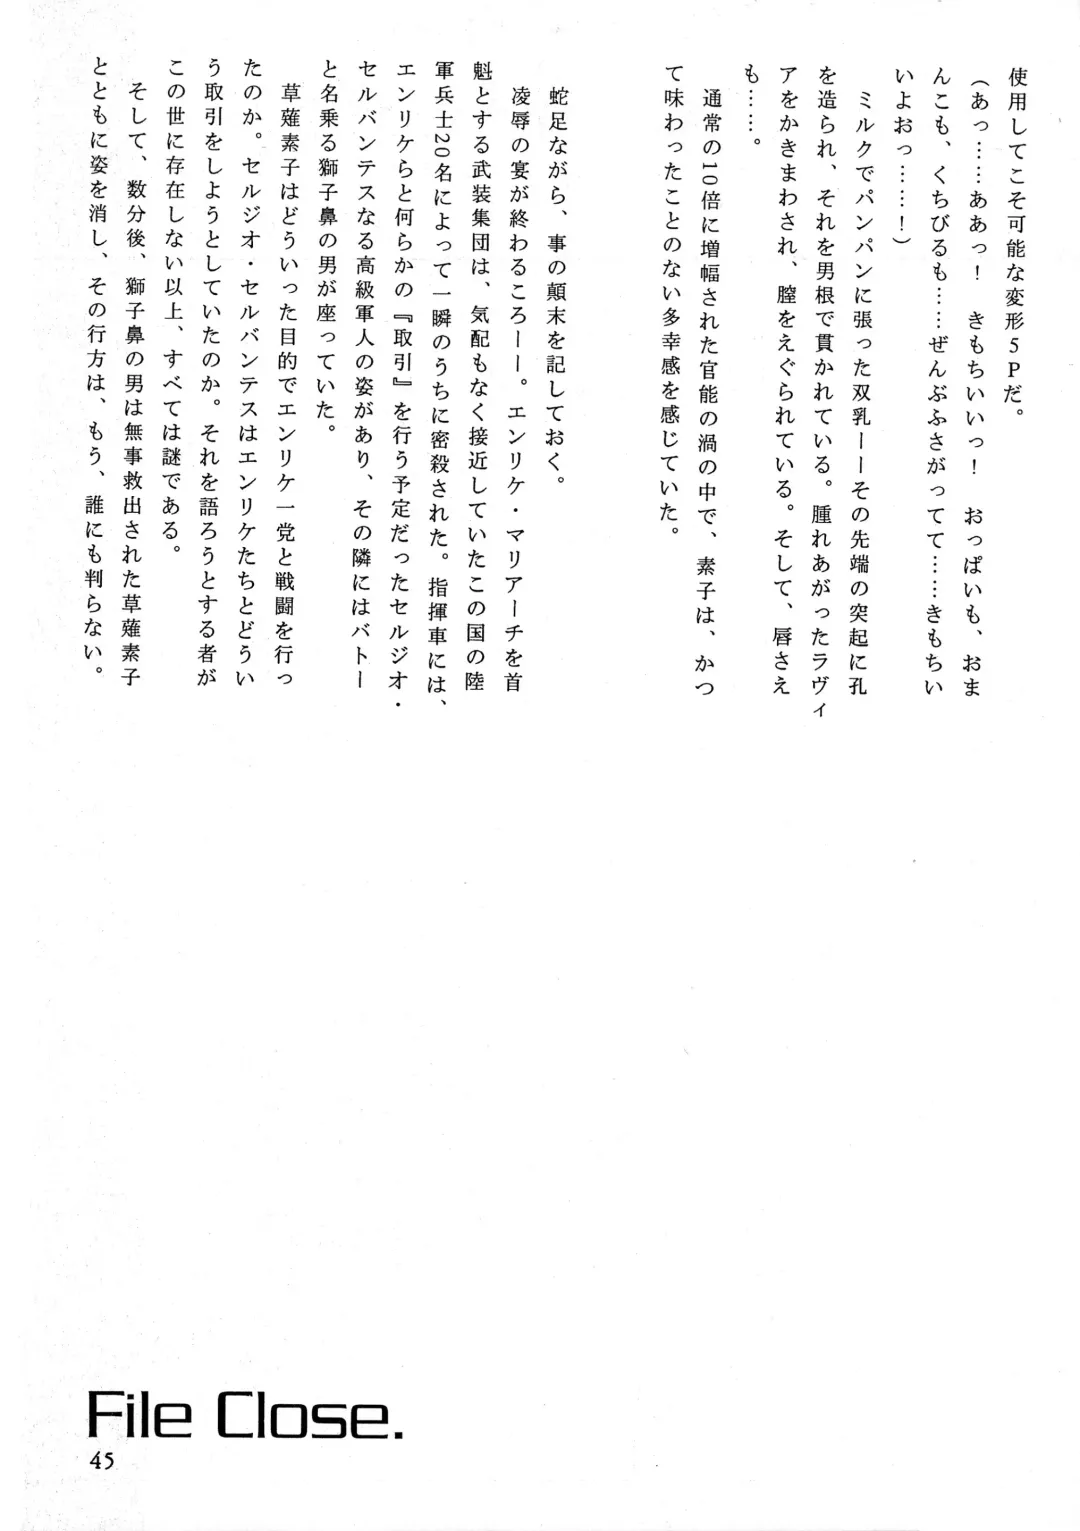 使用してこそ可能な変形5Pだ。
（あっ……ああっ！　きもちいいっ！　おっぱいも、おま
んこも、くちびるも……ぜんぶふさがってて……きもちい
いよおっ……！）
ミルクでパンパンに張った双乳ーーその先端の突起に孔
を造られ、それを男根で貫かれている。腫れあがったラヴィ
アをかきまわされ、膣をえぐられている。そして、唇さえ
も……。
通常の10倍に増幅された官能の渦の中で、素子は、かつ
て味わったことのない多幸感を感じていた。
蛇足ながら、事の顛末を記しておく。
凌辱の宴が終わるころーー。エンリケ・マリアーチを首
魁とする武装集団は、気配もなく接近していたこの国の陸
軍兵士20名によって一瞬のうちに密殺された。指揮車には、
エンリケらと何らかの『取引』を行う予定だったセルジオ・
セルバンテスなる高級軍人の姿があり、その隣にはバトー
と名乗る獅子鼻の男が座っていた。
草薙素子はどういった目的でエンリケ一党と戦闘を行っ
たのか。セルジオ・セルバンテスはエンリケたちとどうい
う取引をしようとしていたのか。それを語ろうとする者が
この世に存在しない以上、すべては謎である。
そして、数分後、獅子鼻の男は無事救出された草薙素子
とともに姿を消し、その行方は、もう、誰にも判らない。
File Close.
45